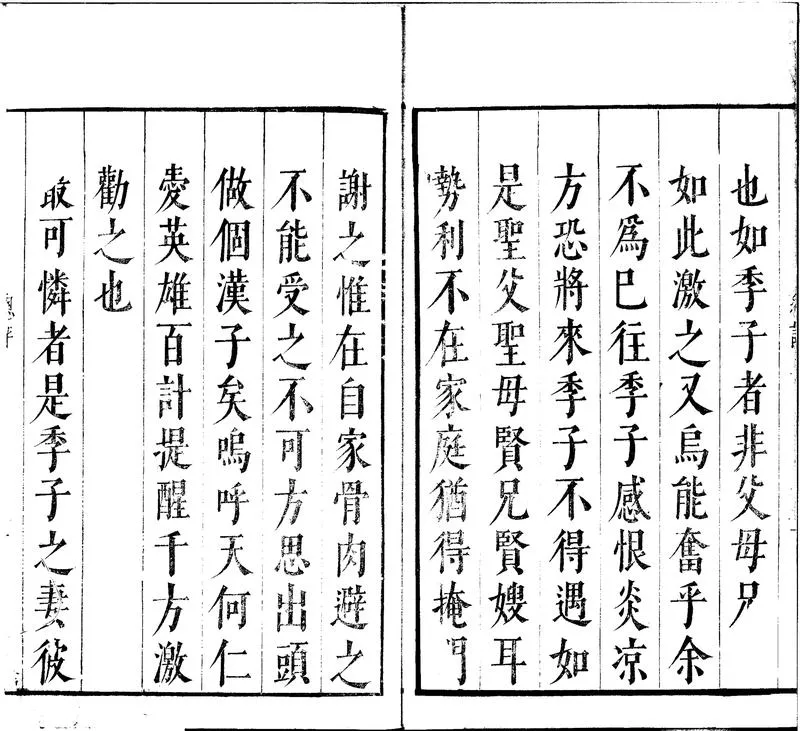 也如季子者非父母兄
如此激之又烏能奮乎余
不爲巳往季子感恨炎凉
方恐將來季子不得遇如
是聖父聖母賢兄賢嫂耳
勢利不在家庭猶得掩門
謝之惟在自家骨肉避之
不能受之不可方思出頭
做個漢子矣嗚呼天何仁
愛英雄百計提醒千方激
勸之也
最可憐者是季子之妻彼